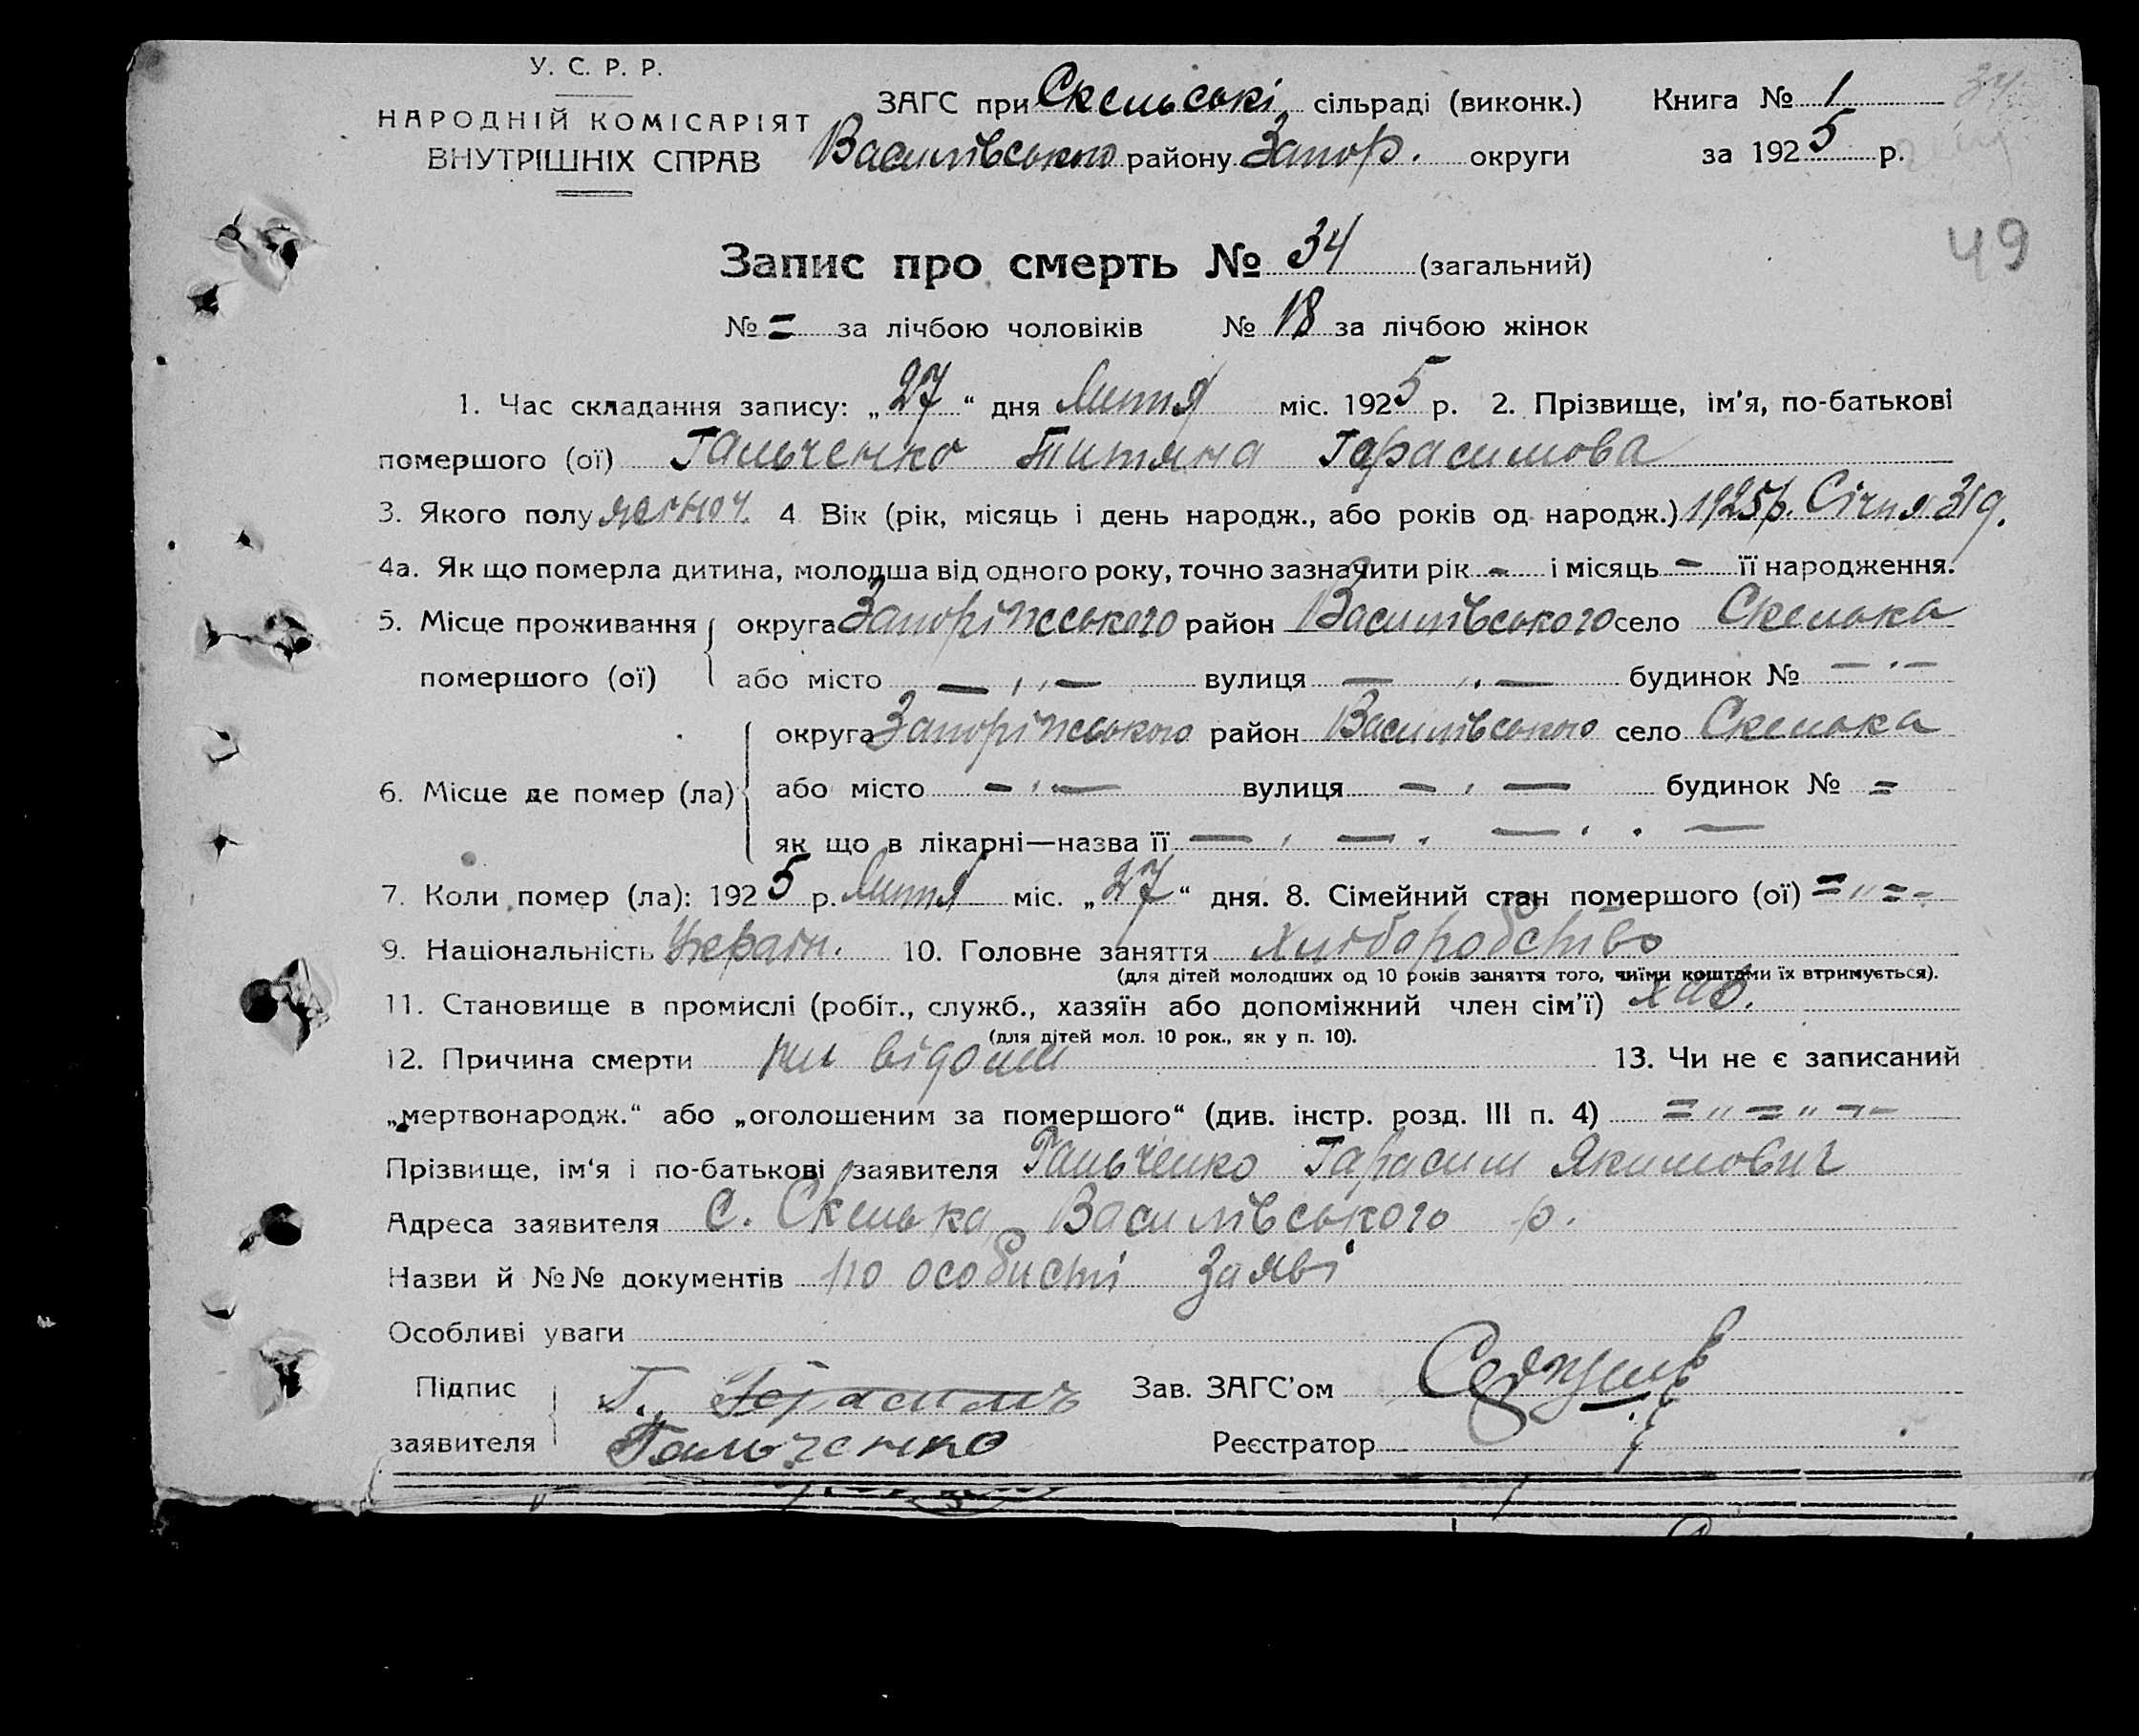 У. С. Р. Р.
НАРОДНІЙ КОМІСАРІЯТ
ВНУТРІШНІХ СПРАВ
ЗАГС при Скельські сільраді (виконк.) Книга № 1
Василівського району Запор. округи за 1925 р.
34
49
Запис про смерть № 34 (загальний)
№ = за лічбою чоловіків № 18 за лічбою жінок
1. Час складання запису: „27“ дня Липня міс. 1925 р. 2. Прізвище, ім'я, по-батькові
помершого (ої) Гальченко Титяна Герасимова
3. Якого полу жіноч. 4 Вік (рік, місяць і день народж., або років од народж.) 1925р. Січня 31д.
4а. Як що померла дитина, молодша від одного року, точно зазначити рік - і місяць - її народження.
5. Місце проживання округа Запоріжського район Василівського село Скелька
помершого (ої) або місто — , , — вулиця — , . — будинок № — . —
округа Запоріжського район Василівського село Скелька
6. Місце де помер (ла) або місто - , — вулиця — , — будинок № =
як що в лікарні—назва її — , — . — . . —
7. Коли помер (ла): 1925 р. Липня міс. „27“ дня. 8. Сімейний стан помершого (ої) = „ = -
9. Національність Україн. 10. Головне заняття хліборобство
(для дітей молодших од 10 років заняття того, чиїми коштами їх втримується).
11. Становище в промислі (робіт., служб., хазяїн або допоміжний член сім'ї)
(для дітей мол. 10 рок., як у п. 10).
12. Причина смерти ни відоми 13. Чи не є записаний
„мертвонародж.“ або „оголошеним за помершого“ (див. інстр. розд. III п. 4) = „ = „ - -
Прізвище, ім'я і по-батькові заявителя Гальченко Гарасим Якимович
Адреса заявителя с. Скелька Василівського р.
Назви й №№ документів по особисті заяві
Особливі уваги
Підпис Г. Герасимъ Зав. ЗАГС'ом
заявителя Гальченко Реєстратор